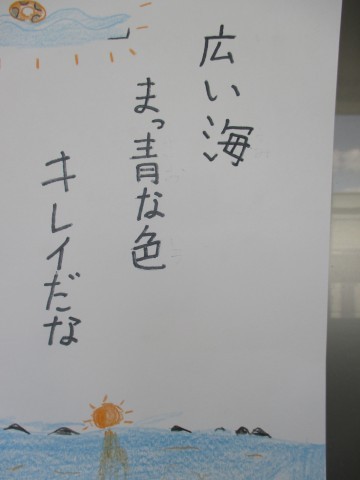 広い海
まっ青な色
キレイだな